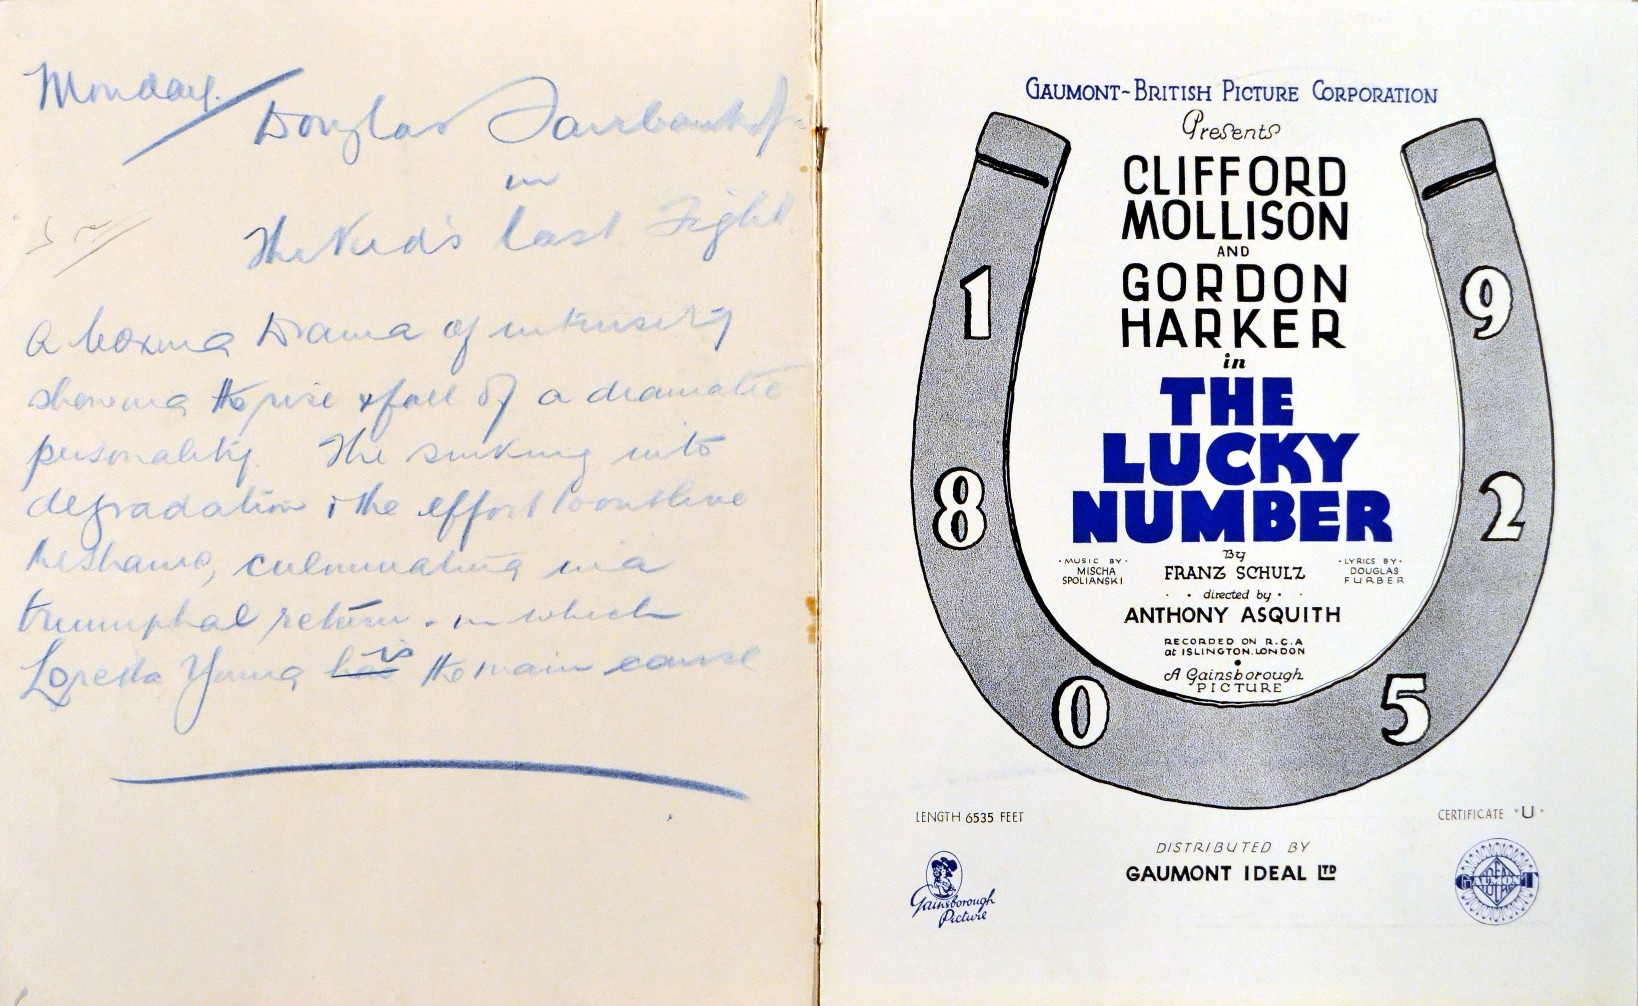 Monday.
Douglas Fairbanks Jr
in
The Kid's last Fight
A boxing Drama of intensity
showing the rise & fall of a dramatic
personality. The sinking into
degradation & the effort to outlive
his shame, culminating in a
triumphal return. in which
Loretta Young has is the main cause
GAUMONT-BRITISH PICTURE CORPORATION
Presents
CLIFFORD
MOLLISON
AND
GORDON
HARKER
in
THE
LUCKY
NUMBER
By
FRANZ SCHULZ
· MUSIC BY ·
MISCHA
SPOLIANSKI
· LYRICS BY ·
DOUGLAS
FURBER
· · directed by · ·
ANTHONY ASQUITH
RECORDED ON R.C.A
at ISLINGTON, LONDON
A Gainsborough
PICTURE
1
8
0
5
2
9
LENGTH 6535 FEET
CERTIFICATE "U"
DISTRIBUTED BY
GAUMONT IDEAL LTD
Gainsborough
Picture
IDEAL
GAUMONT